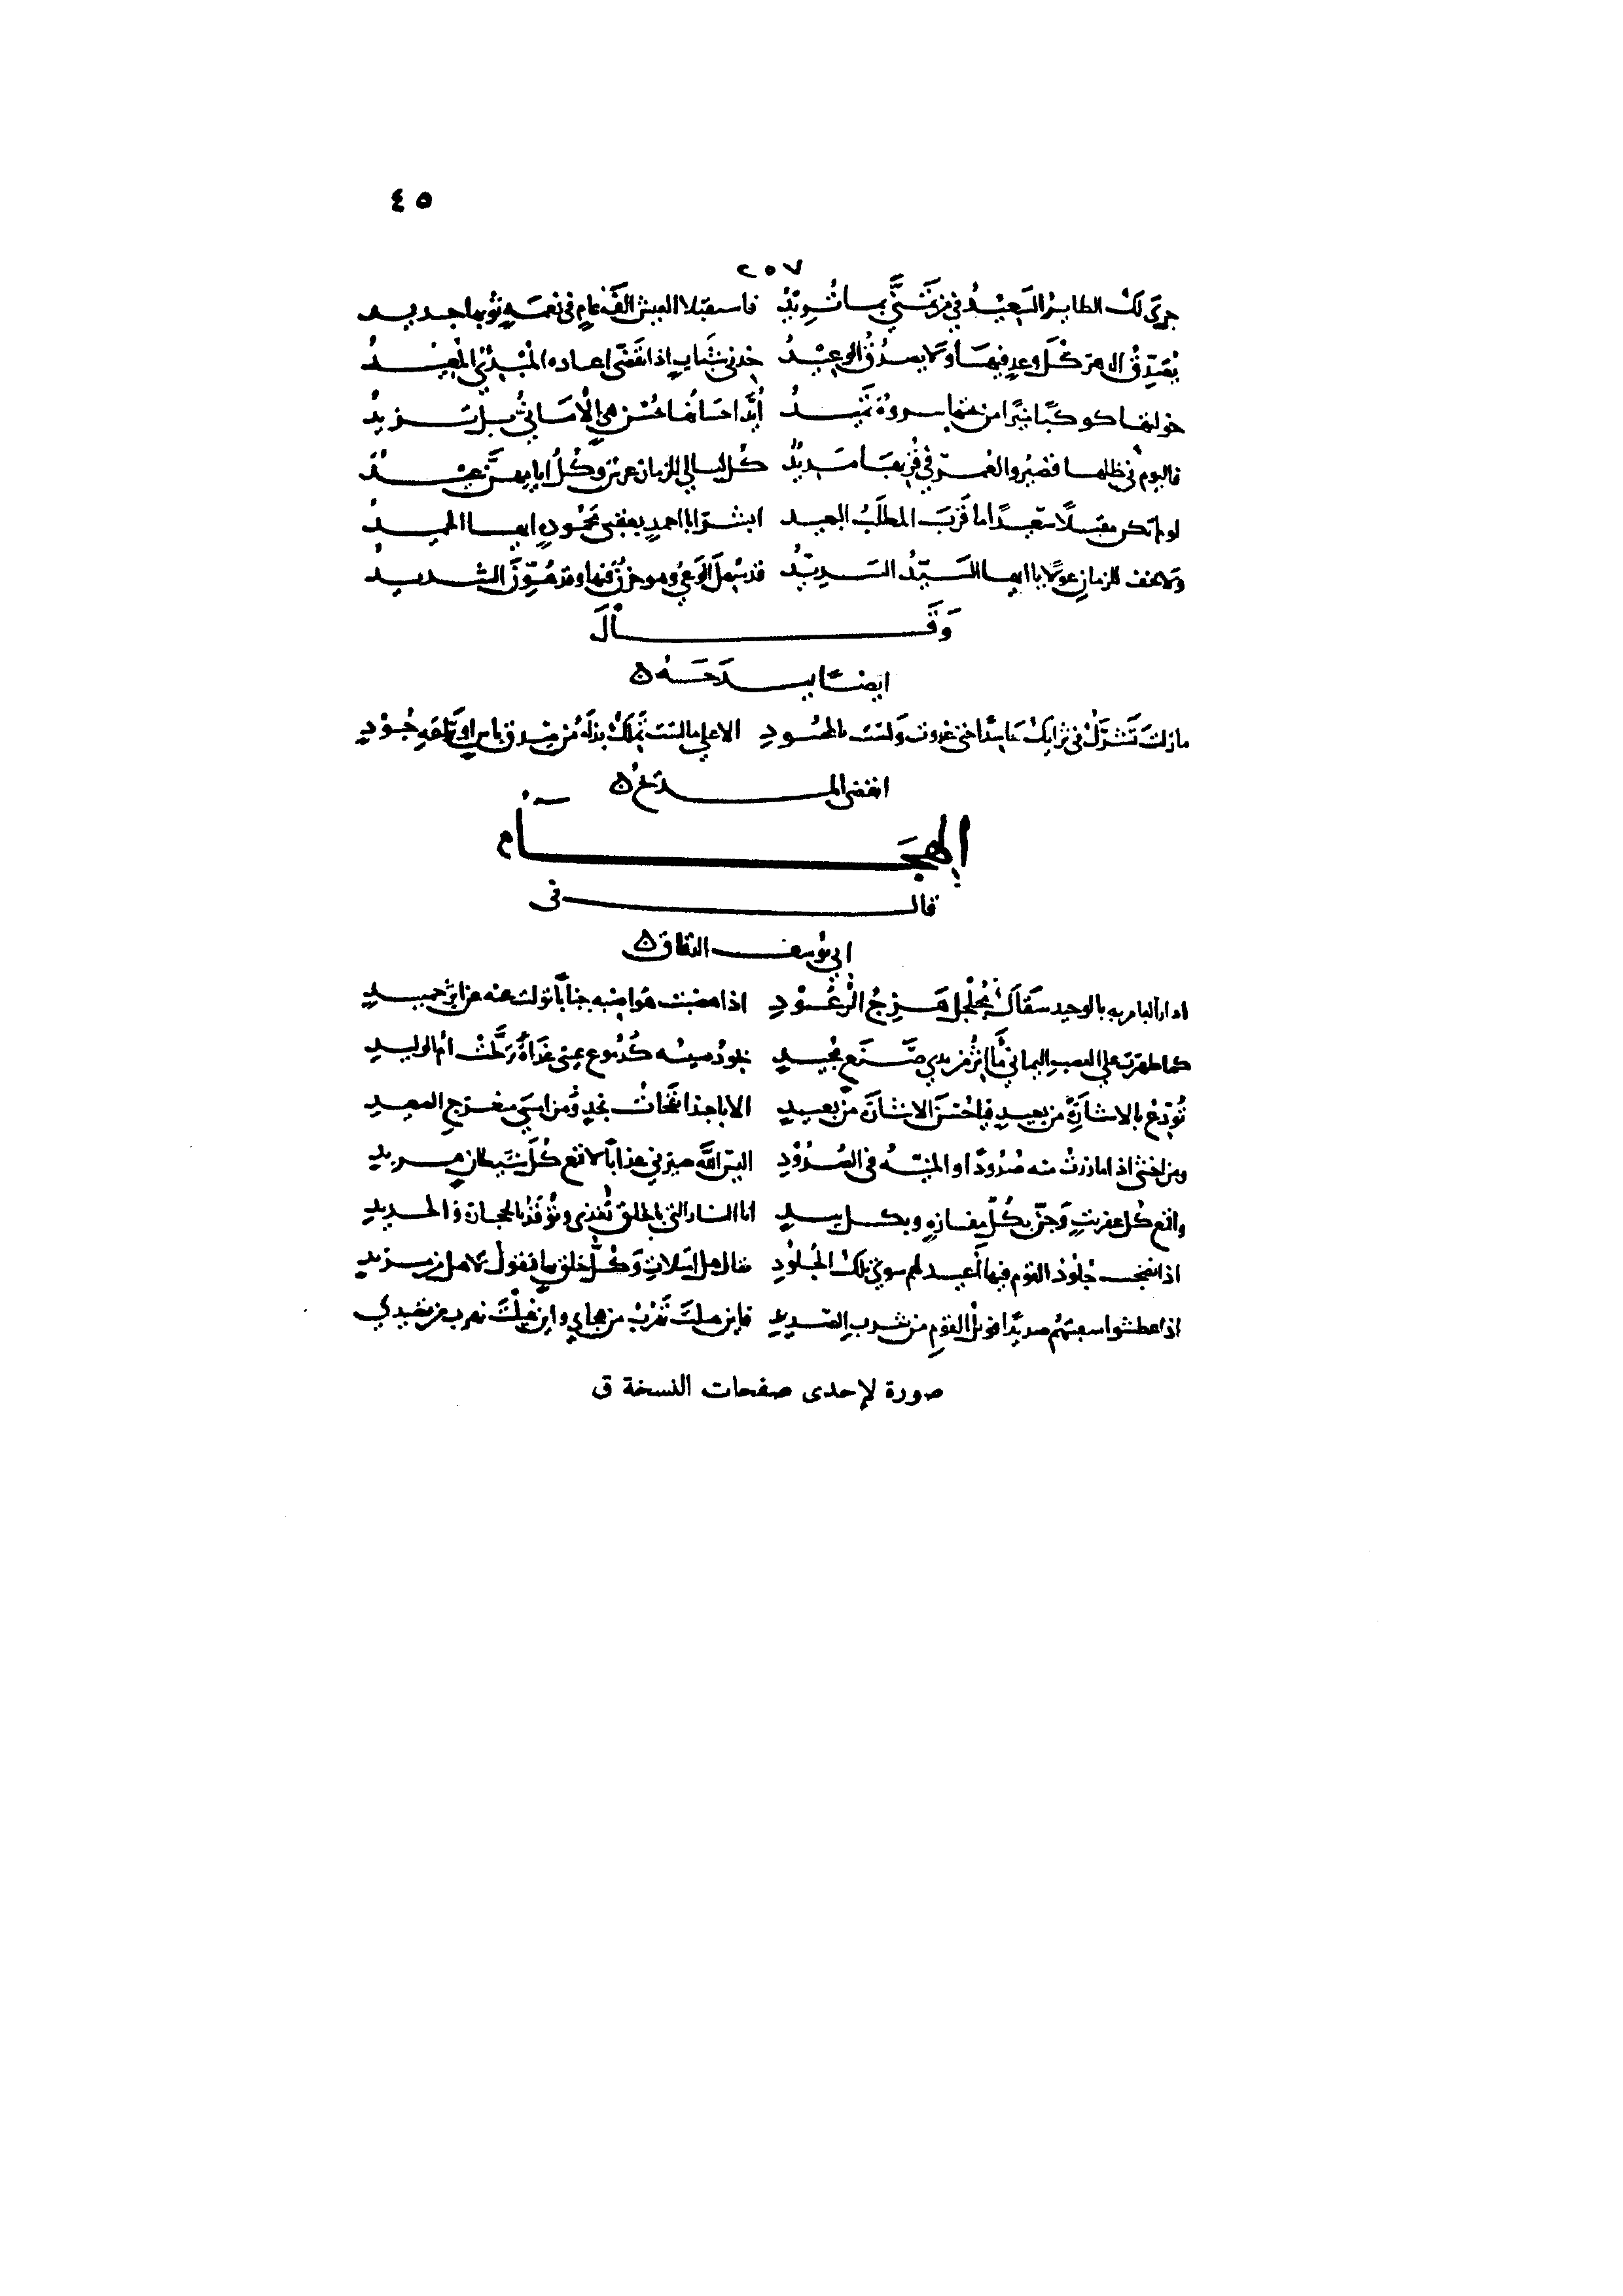 ٤٥
٢٥٧
جرى لك الطاير السعيد في من تمنى بما تريد فاستقبلا العيش الف عام في نعمة ثوبها جديد
يصدق الدهر كل وعد فيها ولا يصدق الوعيد خدني شباب اذا تقضى اعاده المبدئ المعيد
خولتها كوكبا منيرا من حشاه سروة تميد أيد احسانها حسن هي الاماني بل تزيد
فاليوم في ظلها قصير والعمر في قربها مديد كل ليالي الزمان عرس وكل ايامهن عيد
لو لم تكن مقبلا سعيدا ما قرب المطلب البعيد ابشر ابا احمد بعقبى محمودة ايها الحميد
ولا تخف للزمان غولا يا ايها السيد السديد قد سهل الوعر وهو حزن فيها وقد هون الشديد
وقال
ايضا يمدحه
ما زلت تنزل في ترابك حاسدا حتى غدوت ولست بالمحسود الا على ما لست تملك بذله من صدق باس او براعة جود
انقضى المديح
الهجاء
قال في
ابي يوسف الدقاق
ادار العامرية بالوحيد سقاك مجلجل هزج الرعود اذا هضبت هواضبه جنابا تولت عنه عن اثر حميد
كما طهرت على العصب اليماني مآثر من يدي صنع مجيد تجود عينه كدموع عيني غداة ترحلت ام الوليد
تودع بالاشارة من بعيد فيا حسن الاشارة من بعيد الا يا حبذا نفحات نجد ومن امسى بمنعرج الصعيد
ومن اخشى اذا ما زرت منه صدودا او المنية في الصدود اليس الله صيرني عذابا لاقمع كل شيطان مريد
واقمع كل عفريت وجني بكل مفازة وبكل بيد انا النار التي بالخلق تغذى وتوقد بالحجارة والحديد
اذا نضجت جلود القوم فيها اعيد لهم سوى تلك الجلود يقال هل امتلات وكل خلق بها فتقول لا هل من مزيد
اذا عطشوا سقيتهم صديدا فويل القوم من شرب الصديد فاين هبلت تهرب من هجائي واين هبلت تهرب من قصيدي
صورة لإحدى صفحات النسخة ق